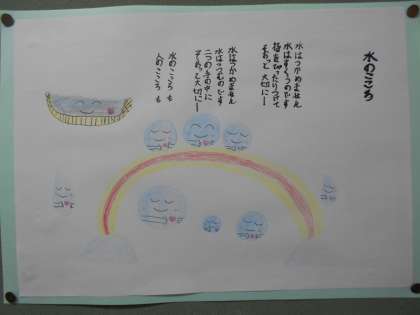 水のこころ
水はつかめません
水はすくうのです
指をぴったりつけて
そおっと 大切に―
水はつかめません
水はつつむのです
二つの手の中に
そおっと 大切に―
水のこころ も
人のこころ も